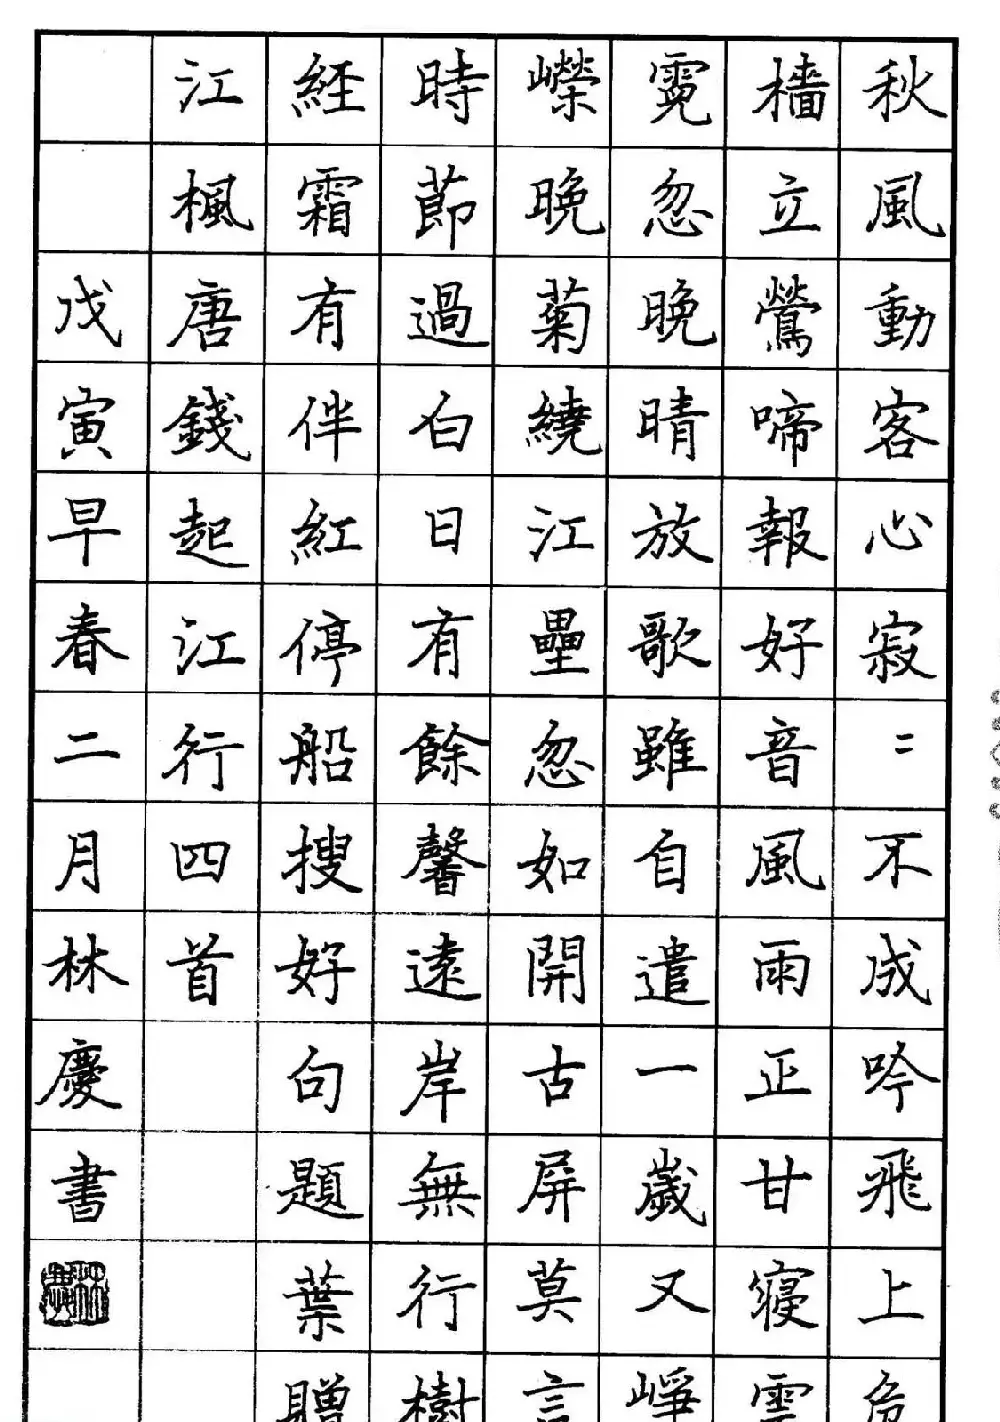 秋風動客心寂〻不成吟飛上危
檣立鶯啼報好音風雨正甘寢雲
霓忽晚晴放歌雖自遣一歲又崢
嶸晚菊繞江壘忽如開古屏莫言
時節過白日有餘馨遠岸無行樹
経霜有伴紅停船搜好句題葉贈
江楓唐錢起江行四首
戊寅早春二月林慶書